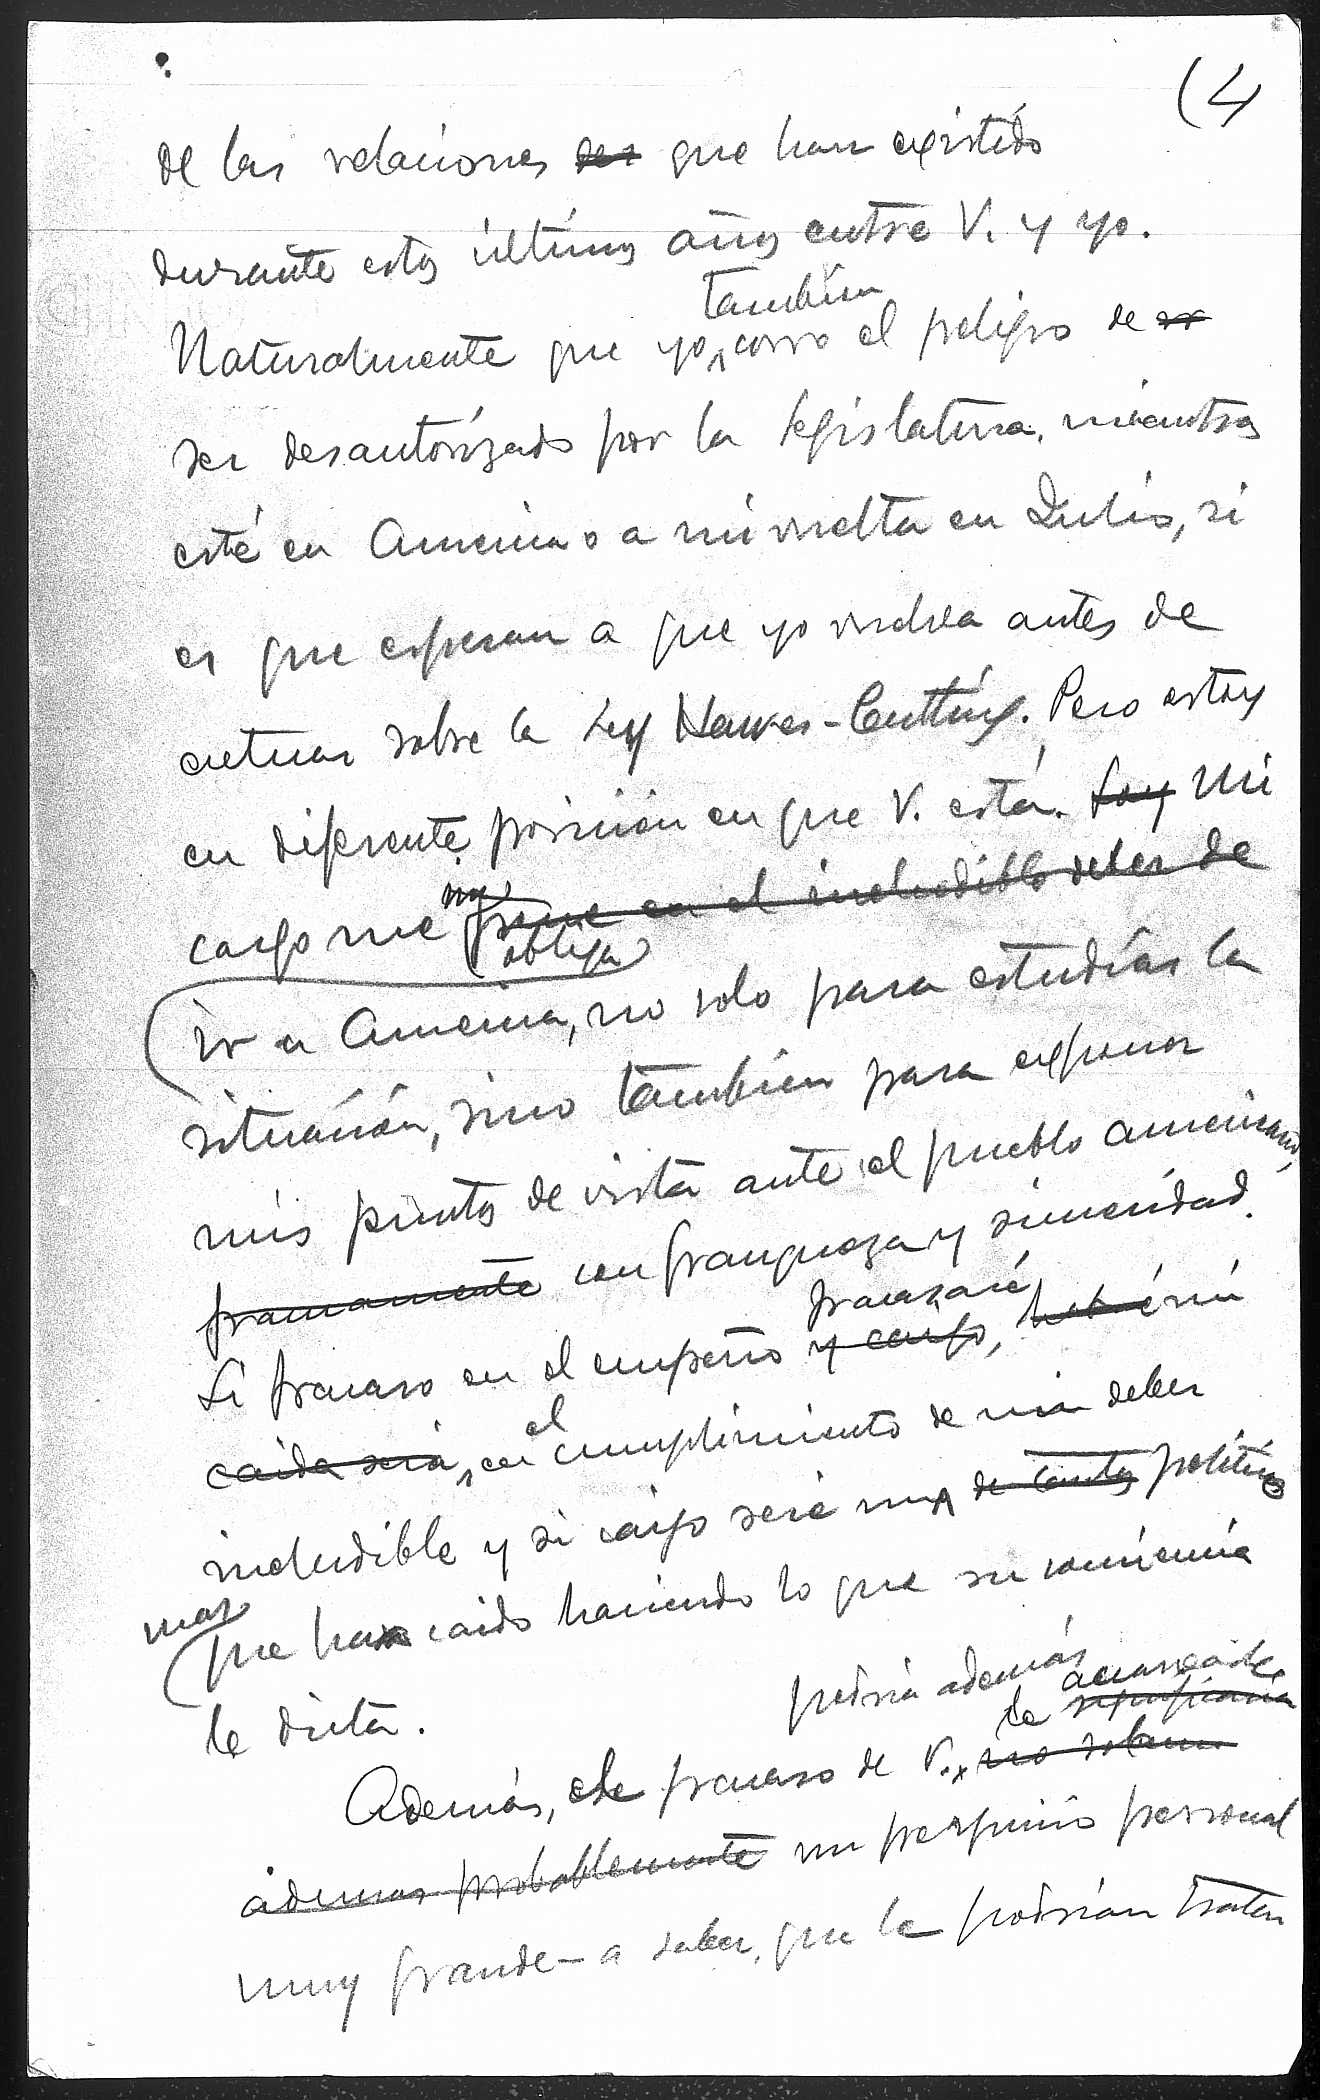 (4
de las relaciones que han existido
durante estos últimos años entre V. y yo.
también
Naturalmente que yo, corro el peligro de
ser desautorizado por la Legislatura, mientras
esté en America o a mi vuelta en Julio, si
es que esperan a que yo vuelva antes de
actuar sobre la Ley Hawes-Cutting. Pero estoy
en diferente posición en que V. está. Soy Mi
cargo me pone en el ineludible deber de
obliga
ir a America, no solo para estudiar la
situación, sino también para exponer
mis puntos de vista ante el pueblo americano,
francamente con franqueza y sinceridad.
fracasaré
Si fracaso en el empeño y caigo,
el
caida será, en cumplimiento de mi deber
ineludible y si caigo seré de tantos politicos
mas
que han caido haciendo lo que su conciencia
le dicta.
podria además
acarrearle
le significaria
Además, el fracaso de V. no solamente
ademas probablemente un perjuicio personal
muy grande— a saber, que le podrian tratar